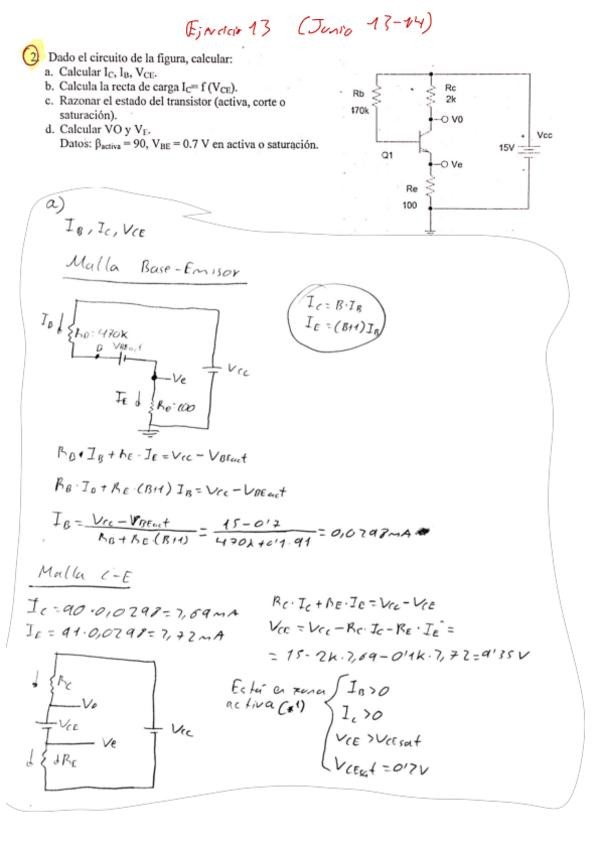 Ejercicio 13 (Junio 13-14)
2. Dado el circuito de la figura, calcular:
a. Calcular IC, IB, VCE.
b. Calcula la recta de carga IC= f (VCE).
c. Razonar el estado del transistor (activa, corte o
saturación).
d. Calcular VO y VE.
Datos: βactiva = 90, VBE = 0.7 V en activa o saturación.
Rb
170k
Rc
2k
V0
Q1
Ve
Re
100
15V
Vcc
a)
IB, IC, VCE
Malla Base-Emisor
IC = B·IB
IE = (B+1) IB
IB
RB=470K
B
VBEact
Ve
IE
Re=100
VCC
RB·IB + RE·IE = VCC - VBEact
RB·IB + RE·(B+1) IB = VCC - VBEact
IB = VCC - VBEact / RB + RE (B+1) = 15 - 0'7 / 470k + 0'1·91 = 0,0298mA
Malla C-E
IC = 90·0,0298 = 2,69mA
IE = 91·0,0298 = 2,72mA
RC·IC + RE·IE = VCC - VCE
VCE = VCC - RC·IC - RE·IE =
= 15 - 2k·2,69 - 0'1k·2,72 = 9'35V
RC
Vo
VCE
Ve
RE
VCC
Está en zona
activa (*1)
IB > 0
IC > 0
VCE > VCEsat
VCEsat = 0'2V